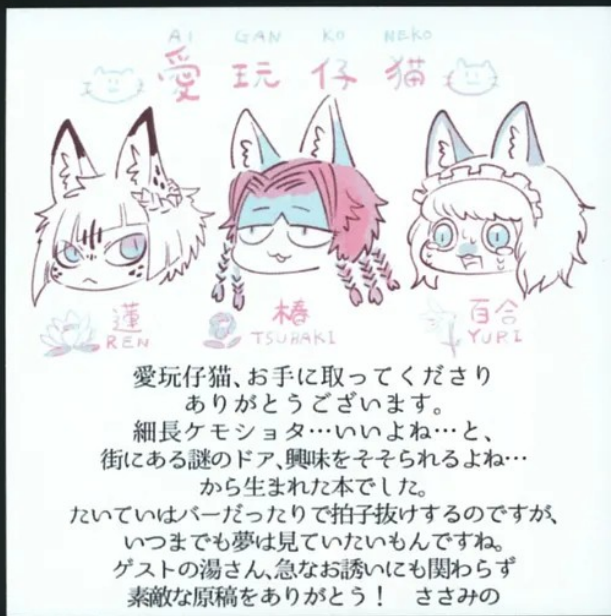 AI GAN KO NEKO
愛玩仔猫
蓮
REN
椿
TSUBAKI
百合
YURI
愛玩仔猫、お手に取ってくださり
ありがとうございます。
細長ケモショタ…いいよね…と、
街にある謎のドア、興味をそそられるよね…
から生まれた本でした。
たいていはバーだったりで拍子抜けするのですが、
いつまでも夢は見ていたいもんですね。
ゲストの湯さん、急なお誘いにも関わらず
素敵な原稿をありがとう！　ささみの